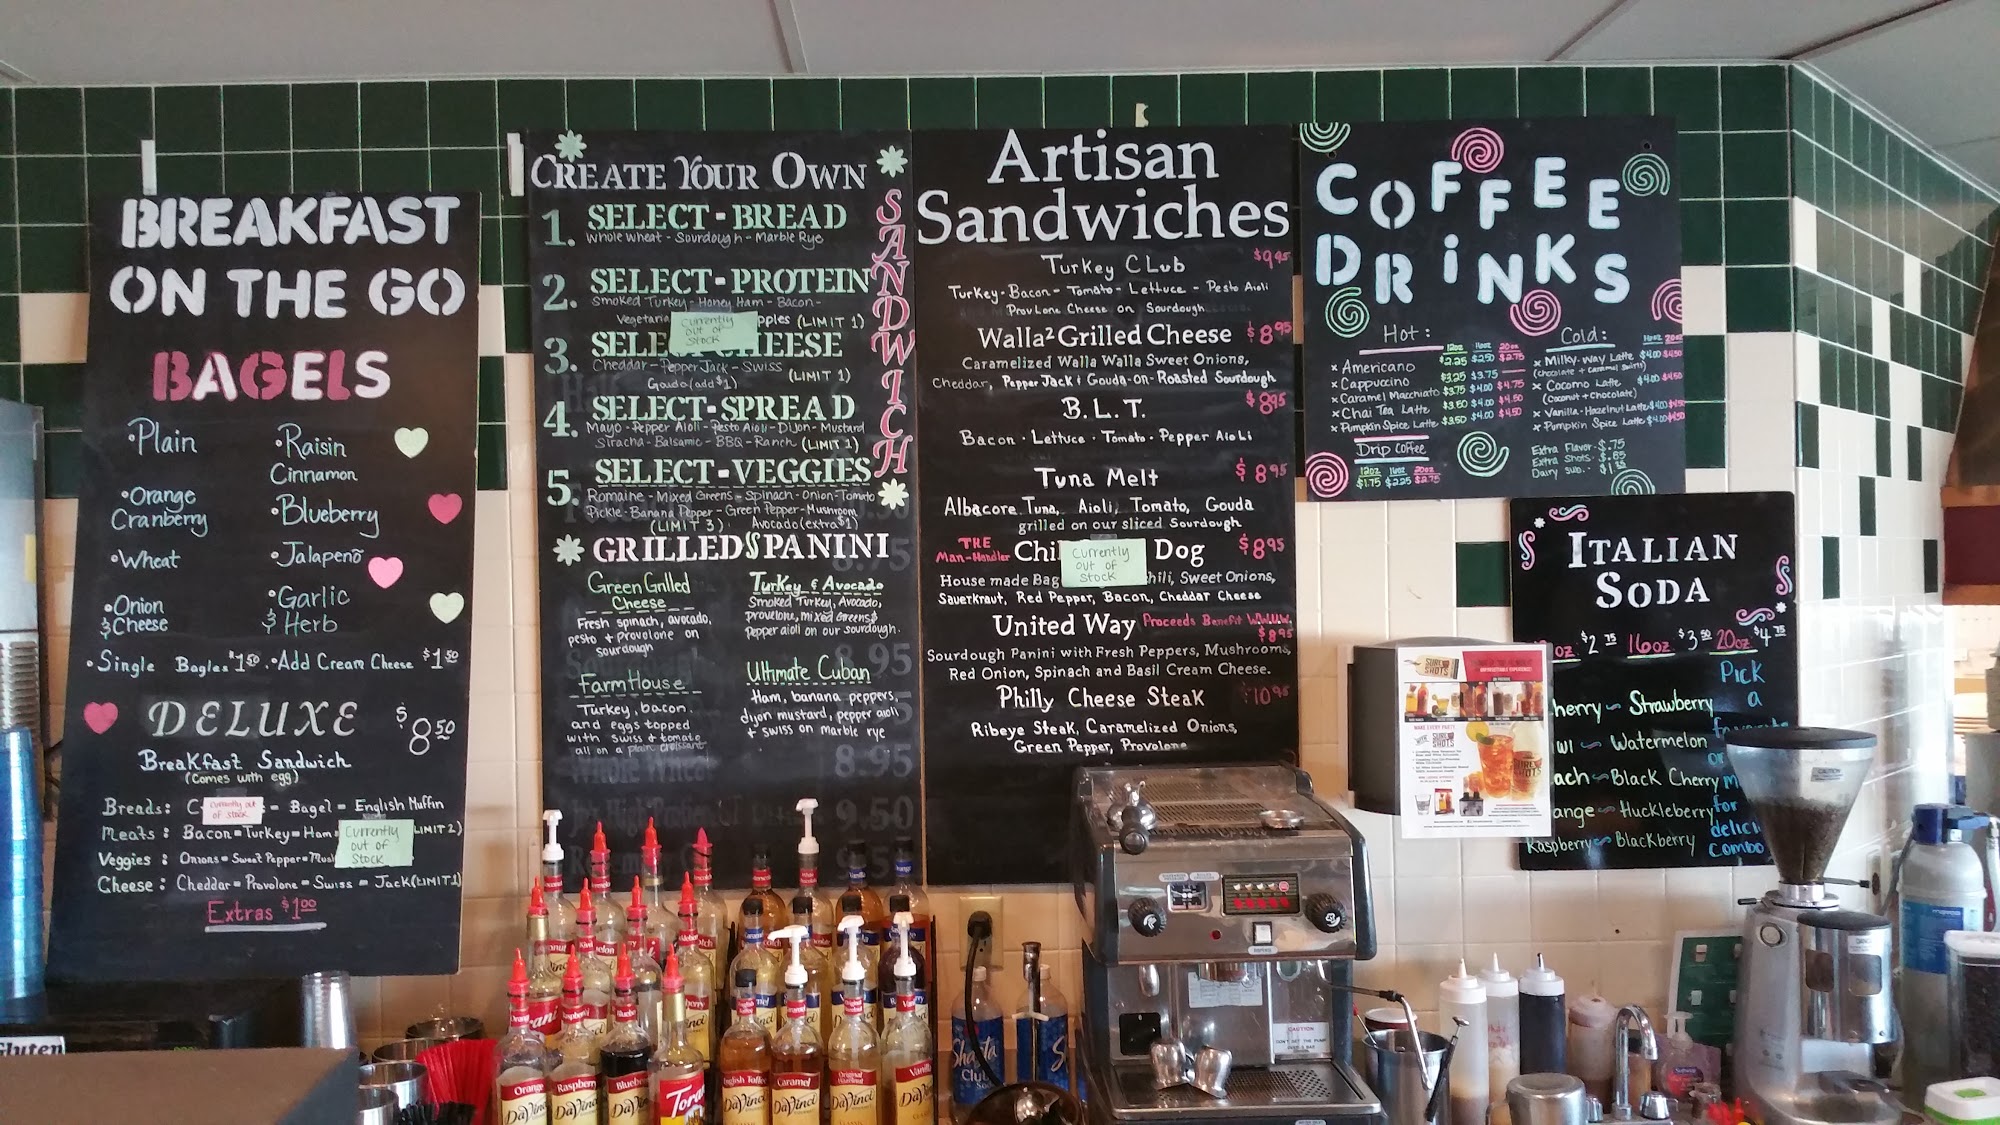 BREAKFAST
ON THE GO
BAGELS
•Plain
•Raisin
Cinnamon
•Orange
Cranberry
•Blueberry
•Wheat
•Jalapeño
•Onion
& Cheese
•Garlic
& Herb
•Single Bagles $1.50
•Add Cream Cheese $1.50
DELUXE $8.50
Breakfast Sandwich
(Comes with egg)
Breads: C
Currently out
of stock
- Bagel - English Muffin
Meats: Bacon-Turkey-Ham-
Currently
out of
stock
LIMIT 2)
Veggies: Onions-Sweet Pepper-Mush
Cheese: Cheddar-Provolone-Swiss-Jack(LIMIT 1)
Extras $1.00
CREATE YOUR OWN
SANDWICH
1. SELECT-BREAD
Whole Wheat - Sourdough - Marble Rye
2. SELECT-PROTEIN
Smoked Turkey - Honey Ham - Bacon -
Vegetaria
Currently
out of
stock
pples (LIMIT 1)
3. SELE CHEESE
Cheddar - Pepper Jack - Swiss
Gouda (add $1) (LIMIT 1)
4. SELECT-SPREAD
Mayo - Pepper Aioli - Pesto Aioli - Dijon - Mustard
Siracha - Balsamic - BBQ - Ranch (LIMIT 1)
5. SELECT-VEGGIES
Romaine - Mixed Greens - Spinach - Onion - Tomato
Pickle - Banana Pepper - Green Pepper - Mushroom
(LIMIT 3) Avocado (extra $1)
GRILLED PANINI
Green Grilled
Cheese
Fresh spinach, avocado,
pesto + provolone on
sourdough
Turkey & Avocado
Smoked Turkey, Avocado,
provelone, mixed Greens &
pepper aioli on our sourdough.
FarmHouse
Turkey, bacon,
and eggs topped
with Swiss + tomato
all on a plain croissant
Ultimate Cuban
Ham, banana peppers,
dijon mustard, pepper aioli
+ swiss on marble rye
8.75
8.95
8.95
9.50
Artisan
Sandwiches
Turkey CLub $9.95
Turkey - Bacon - Tomato - Lettuce - Pesto Aioli
ProvLone Cheese on Sourdough
Walla² Grilled Cheese $8.95
Caramelized Walla Walla Sweet Onions,
Cheddar, Pepper Jack & Gouda-on-Roasted Sourdough
B.L.T. $8.95
Bacon · Lettuce · Tomato · Pepper Aioli
Tuna Melt $8.95
Albacore Tuna, Aioli, Tomato, Gouda
grilled on our sliced Sourdough
THE
Man-Handler Chi
Currently
out of
stock
Dog $8.95
House made Bag hili, Sweet Onions,
Sauerkraut, Red Pepper, Bacon, Cheddar Cheese
United Way Proceeds Benefit WWUW.
$8.95
Sourdough Panini with Fresh Peppers, Mushrooms,
Red Onion, Spinach and Basil Cream Cheese.
Philly Cheese Steak $10.95
Ribeye Steak, Caramelized Onions,
Green Pepper, Provolone
COFFEE
DRiNKS
Hot:
12oz 16oz 20oz
x Americano $2.25 $2.50 $2.75
x Cappuccino $3.25 $3.75
x Caramel Macchiato $3.75 $4.00 $4.75
x Chai Tea Latte $3.50 $4.00 $4.50
x Pumpkin Spice Latte $3.50 $4.00 $4.50
Drip Coffee
12oz 16oz 20oz
$1.75 $2.25 $2.75
Cold:
16oz 20oz
x Milky-way Latte $4.00 $4.50
(chocolate + caramel swirls)
x Cocomo Latte $4.00 $4.50
(Coconut + Chocolate)
x Vanilla-Hazelnut Latte $4.00 $4.50
x Pumpkin Spice Latte $4.00 $4.50
Extra Flavor - $.75
Extra Shots - $.85
Dairy Sub. -
ITALIAN
SODA
oz $2.75 16oz $3.50 20oz $4.75
herry ~ Strawberry
iwi ~ Watermelon
ach ~ Black Cherry
ange ~ Huckleberry
Raspberry ~ Blackberry
Pick
a
favorite
or
for
delici
Combo
SURE
SHOTS
Gluten
Orange
DaVinci
Raspberry
DaVinci
Blueberry
DaVinci
Torani
English Toffee
DaVinci
Caramel
DaVinci
Original
Hazelnut
DaVinci
Vanilla
DaVinci
Shasta
Club
Soda
CAUTION